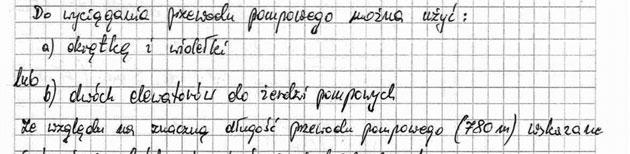 Do wyciągania przewodu pompowego można użyć:
a) okrętkę i widełki
lub
b) dwóch elewatorów do żerdzi pompowych
Ze względu na znaczną długość przewodu pompowego (780 m) wskazane